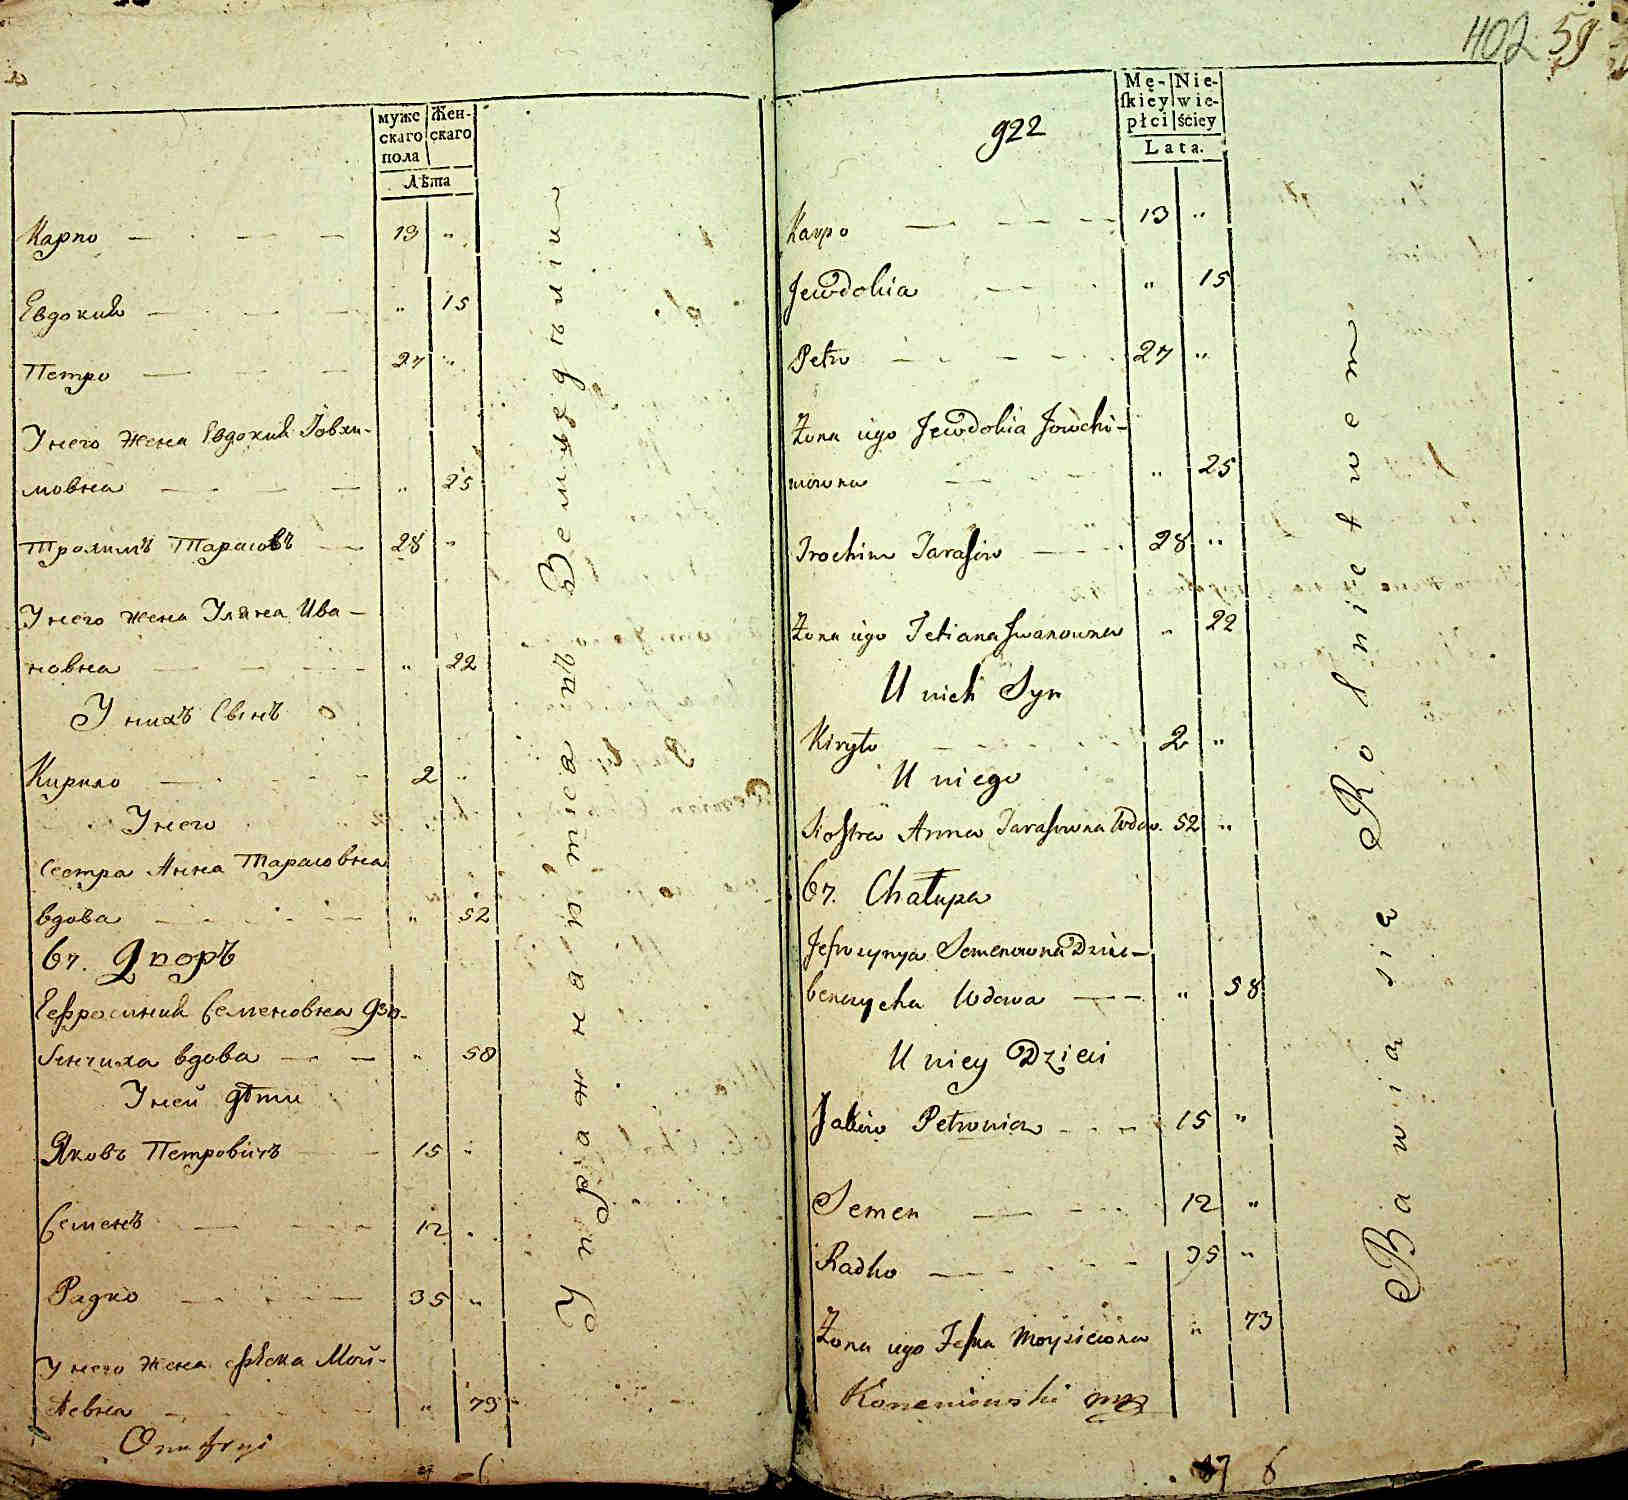 402 59
муже Жен-
скаго скаго
пола
Лѣта
Карпо — 13 „
Евдокия — „ 15
Петро — 27 „
У него жена Евдокия Іовхи-
мовна — „ 25
Трохимъ Тарасовъ — 28 „
У него жена Уляна Ива-
новна — „ 22
У нихъ Сынъ
Кирило — 2 „
У него
Сестра Анна Тарасовна
вдова — „ 52
67. Дворъ
Ефросиния Семеновна Дзю-
бенчиха вдова — „ 58
У ней дѣти
Яковъ Петровичъ — 15 „
Семенъ — 12 „
Радко — 35 „
У него жена Мой-
„ 73
Onufryi
Упражняются Земледѣлиемъ
922
Mę- Nie-
ſkiey wie-
płci ściey
Lata.
Karpo — 13 „
Jewdokia — „ 15
Petro — 27 „
Żona iego Jewdokia Jowchi-
mowna — „ 25
Trochim Tarasow — 28 „
Żona iego Tetiana Jwanowna „ 22
U nich Syn
Kiryło — 2 „
U niego
Siostra Anna Tarasowna Wdow. 52 „
67. Chałupa
Jefrozynya Semenowna Dziu-
benczycha Wdowa — „ 58
U niey Dzieci
Jakow Petrowicz — 15 „
Semen — 12 „
Radko — 35 „
Żona iego Moysieiowna „ 73
Bawią się Rolnictwem